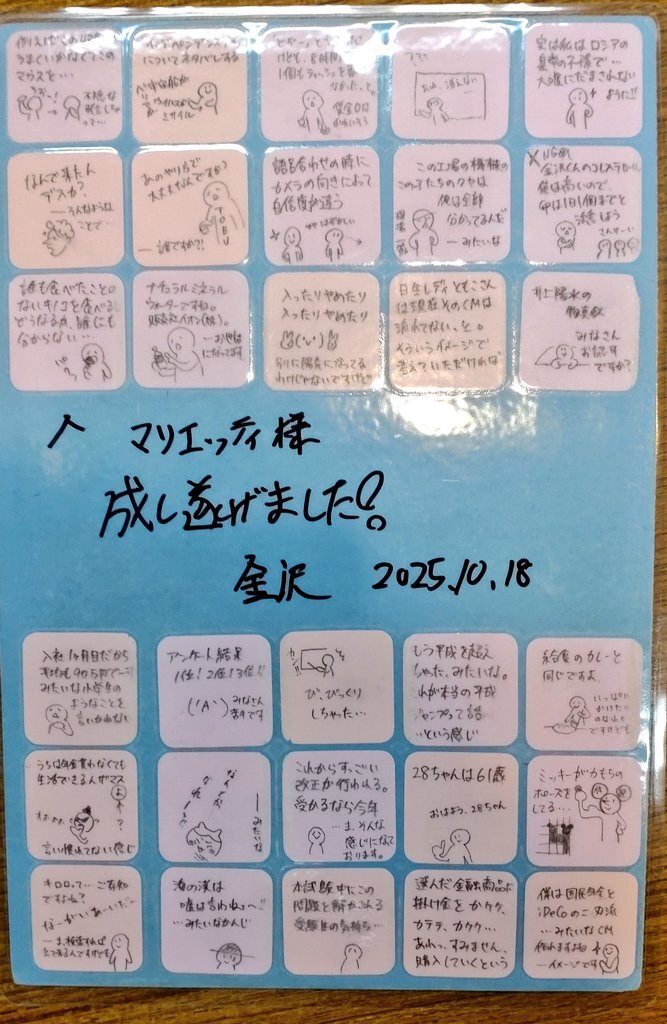 マウスを…
不穏な
について ネタバレする
どやーっと
1個も
あれ、消えない…
実は私は ロシアの
皇帝の子孫で…
大嘘にだまされない
ように!!
なんで来たん
デスカ?
ーそんなような
ことで…
あのやり方で
大丈夫なんですか?
TOBU
ー 誰ですか?!
語呂合わせの時に
カメラの向きによって
自信度が違う
この工場の機械の
この子たちのクセは
俺は全部
分かってるんだ
ーみたいな
金沢くんのコレステロール
僕は高いので、
卵は1日1個までと
決意しよう
誰も食べたことの
ないキノコを食べると
どうなるか、誰にも
分からない…
ナチュラルミネラル
ウォーターですね。
販売元イオン(株)。
…お世話
になってます
入ったりやめたり
入ったりやめたり
別に陽気になってる
わけじゃないですけど
日生レディ ともこさん
は現在そのCMは
流れてない、と。
そういうイメージで
考えていただければ
井上陽水の
みなさん
お認す
ですか?
マリエッティ様
成し遂げました!
金沢 2025.10.18
入社1ヶ月目だから
みたいな小学生の
ようなことを
言いかねない
アンケート結果
1位! 2位! 3位!!
('A`) みなさん
び、びっくり
しちゃった…
もう平成を超え
ちゃった、みたいな。
これが本当の平成
ジャンプって話
…という感じ
給食のカレーと
同じですよ
いっぱい
かけたい
のはわかる
ですけども
うちは年金貰わなくても
生活できるんザマス
よォ?
言い慣れてない感じ
ーみたいな
これからすっごい
改正が行われる。
受かるなら今年
…ま、そんな
感じになって
おります。
28ちゃんは61歳
おはよう、28ちゃん
ミッキーが力もちの
ポーズを
してる…
キロロって…ご存知
ですよね?
なーがいあいだー
ーま、検索すれば
出てきるんですけども
渚の漢は
嘘は言わねぇべ
…みたいなかんじ
本試験中にこの
問題を解かれる
受験生の気持ち…
選んだ金融商品より
掛け金をカケケ、
カテテ、カケケ…
あれっ、すみません、
購入していくという
僕は国民年金と
iDeCoの二刀流
…みたいなCM
作れますよね
ーイメージです